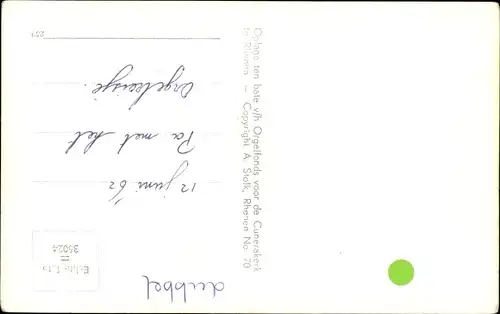 dubbel
Echte Foto
=
35024
12 juni '62
Pa met het
Orgelkaisje.
Oplage ten bate v/h Orgelfonds voor de Cunerakerk
te Rhenen — Copyright A. Stolk, Rhenen No. 70